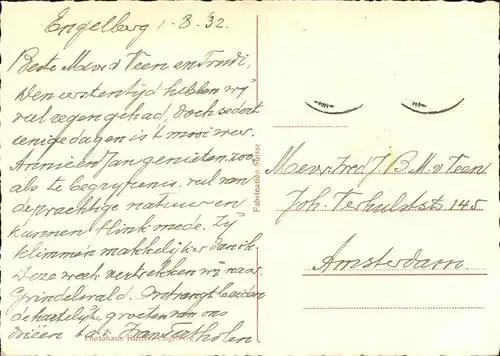 Engelberg 1-8-32.
Beste Mevr v Veen en Trudi,
Den eersten tijd hebben wij
veel regen gehad, doch sedert
eenige dagen is 't mooi weer.
Annie en Jan genieten, zoo
als te begrijpen is, veel van
de prachtige natuur en
kunnen flink mede. Zij
klimmen makkelijker dan ik.
Deze week vertrekken wij naar
Grindelwald. Ontvangt beiden
de hartelijke groeten van ons
drieën t.à.v.
Photohaus
Fabrication Suisse
Mevr. Wed. J. B. M. v Veen
Joh. Verhulststr 145
Amsterdam.